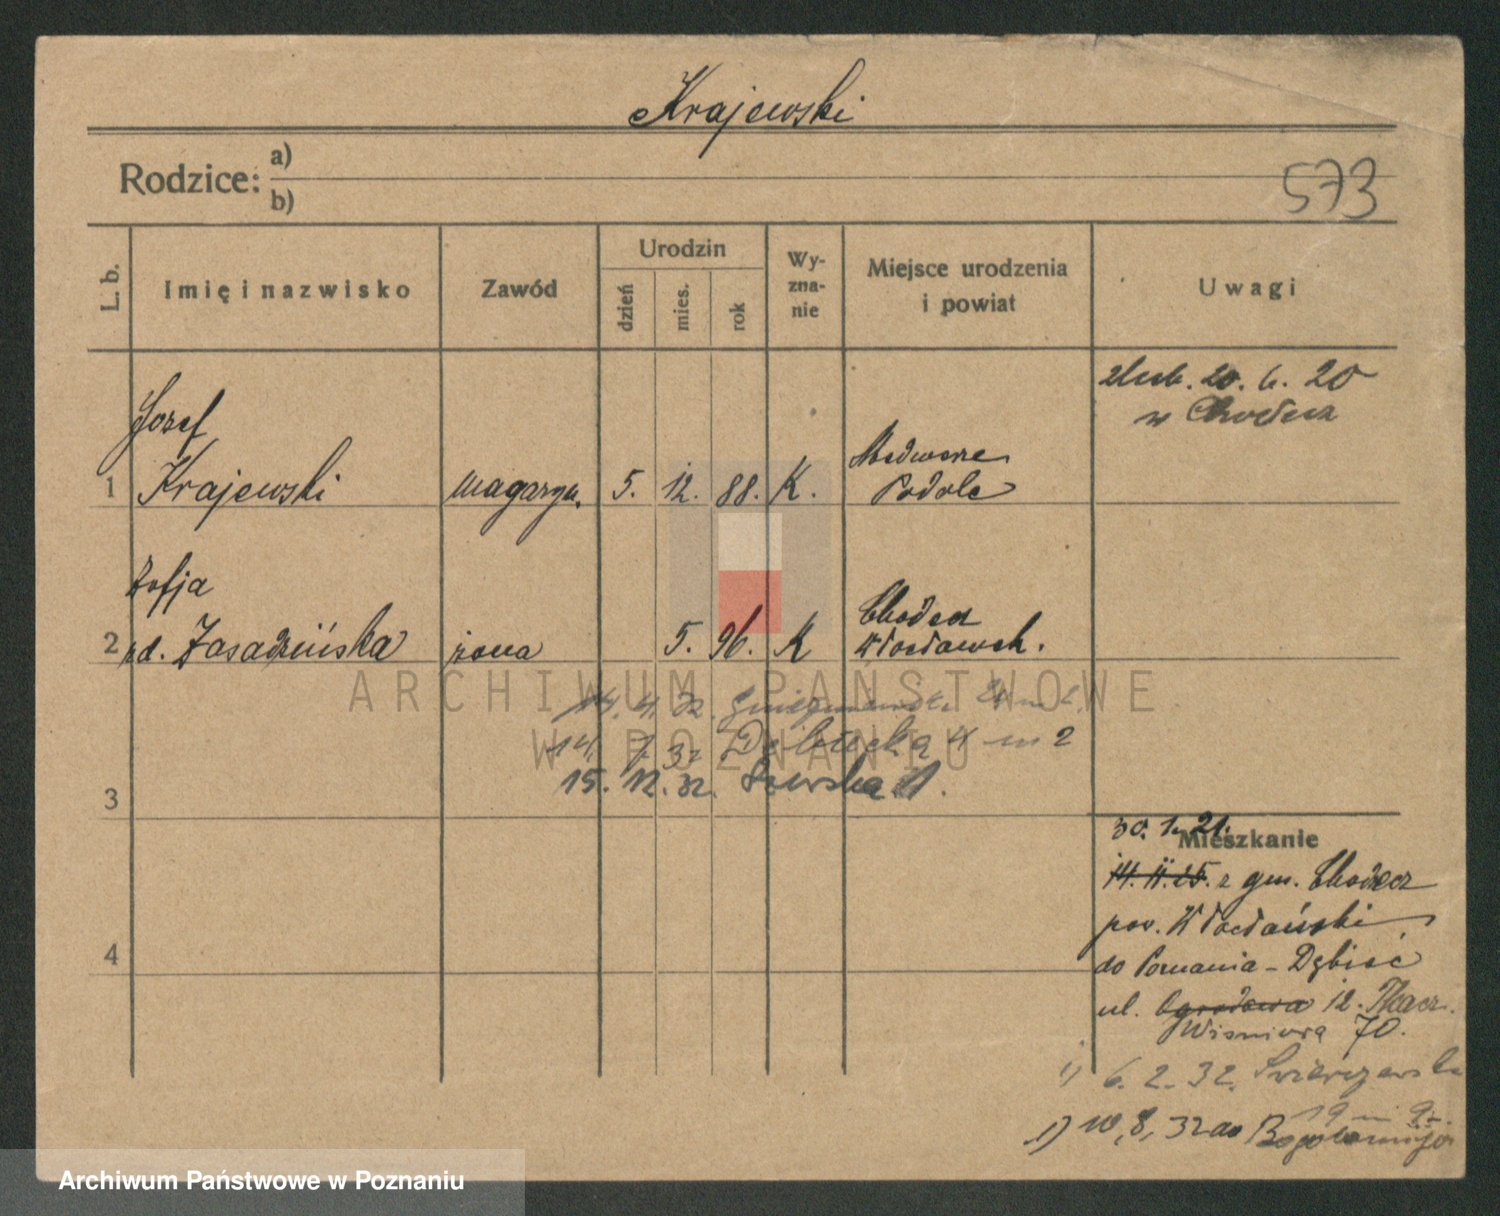 Krajewski
Rodzice: a)
b)
573
L. b.
Imię i nazwisko
Zawód
Urodzin
dzień
mies.
rok
Wy-
zna-
nie
Miejsce urodzenia
i powiat
Uwagi
ślub. 20. 6. 20
w Chodecz
Józef
1 Krajewski magazyn. 5. 12. 88. K.
Podole
Zofja
2 zd. Zasadzińska żona 5. 96. K
Chodecz
Włocławek.
14. 4. 32.
14. 7. 32 Dębiecka 4 m 2
15. 12. 32.
3
4
30. 1. 21.
Mieszkanie
14. 11. 25. z gm. Chodecz
pow. Włocławski
do Poznania - Dębiec
ul. Ogrodowa 12.
Wiśniowa 70.
1) 6. 2. 32.
19 m 9.
1) 10, 8, 32 do
ARCHIWUM PAŃSTWOWE
W POZNANIU
Archiwum Państwowe w Poznaniu